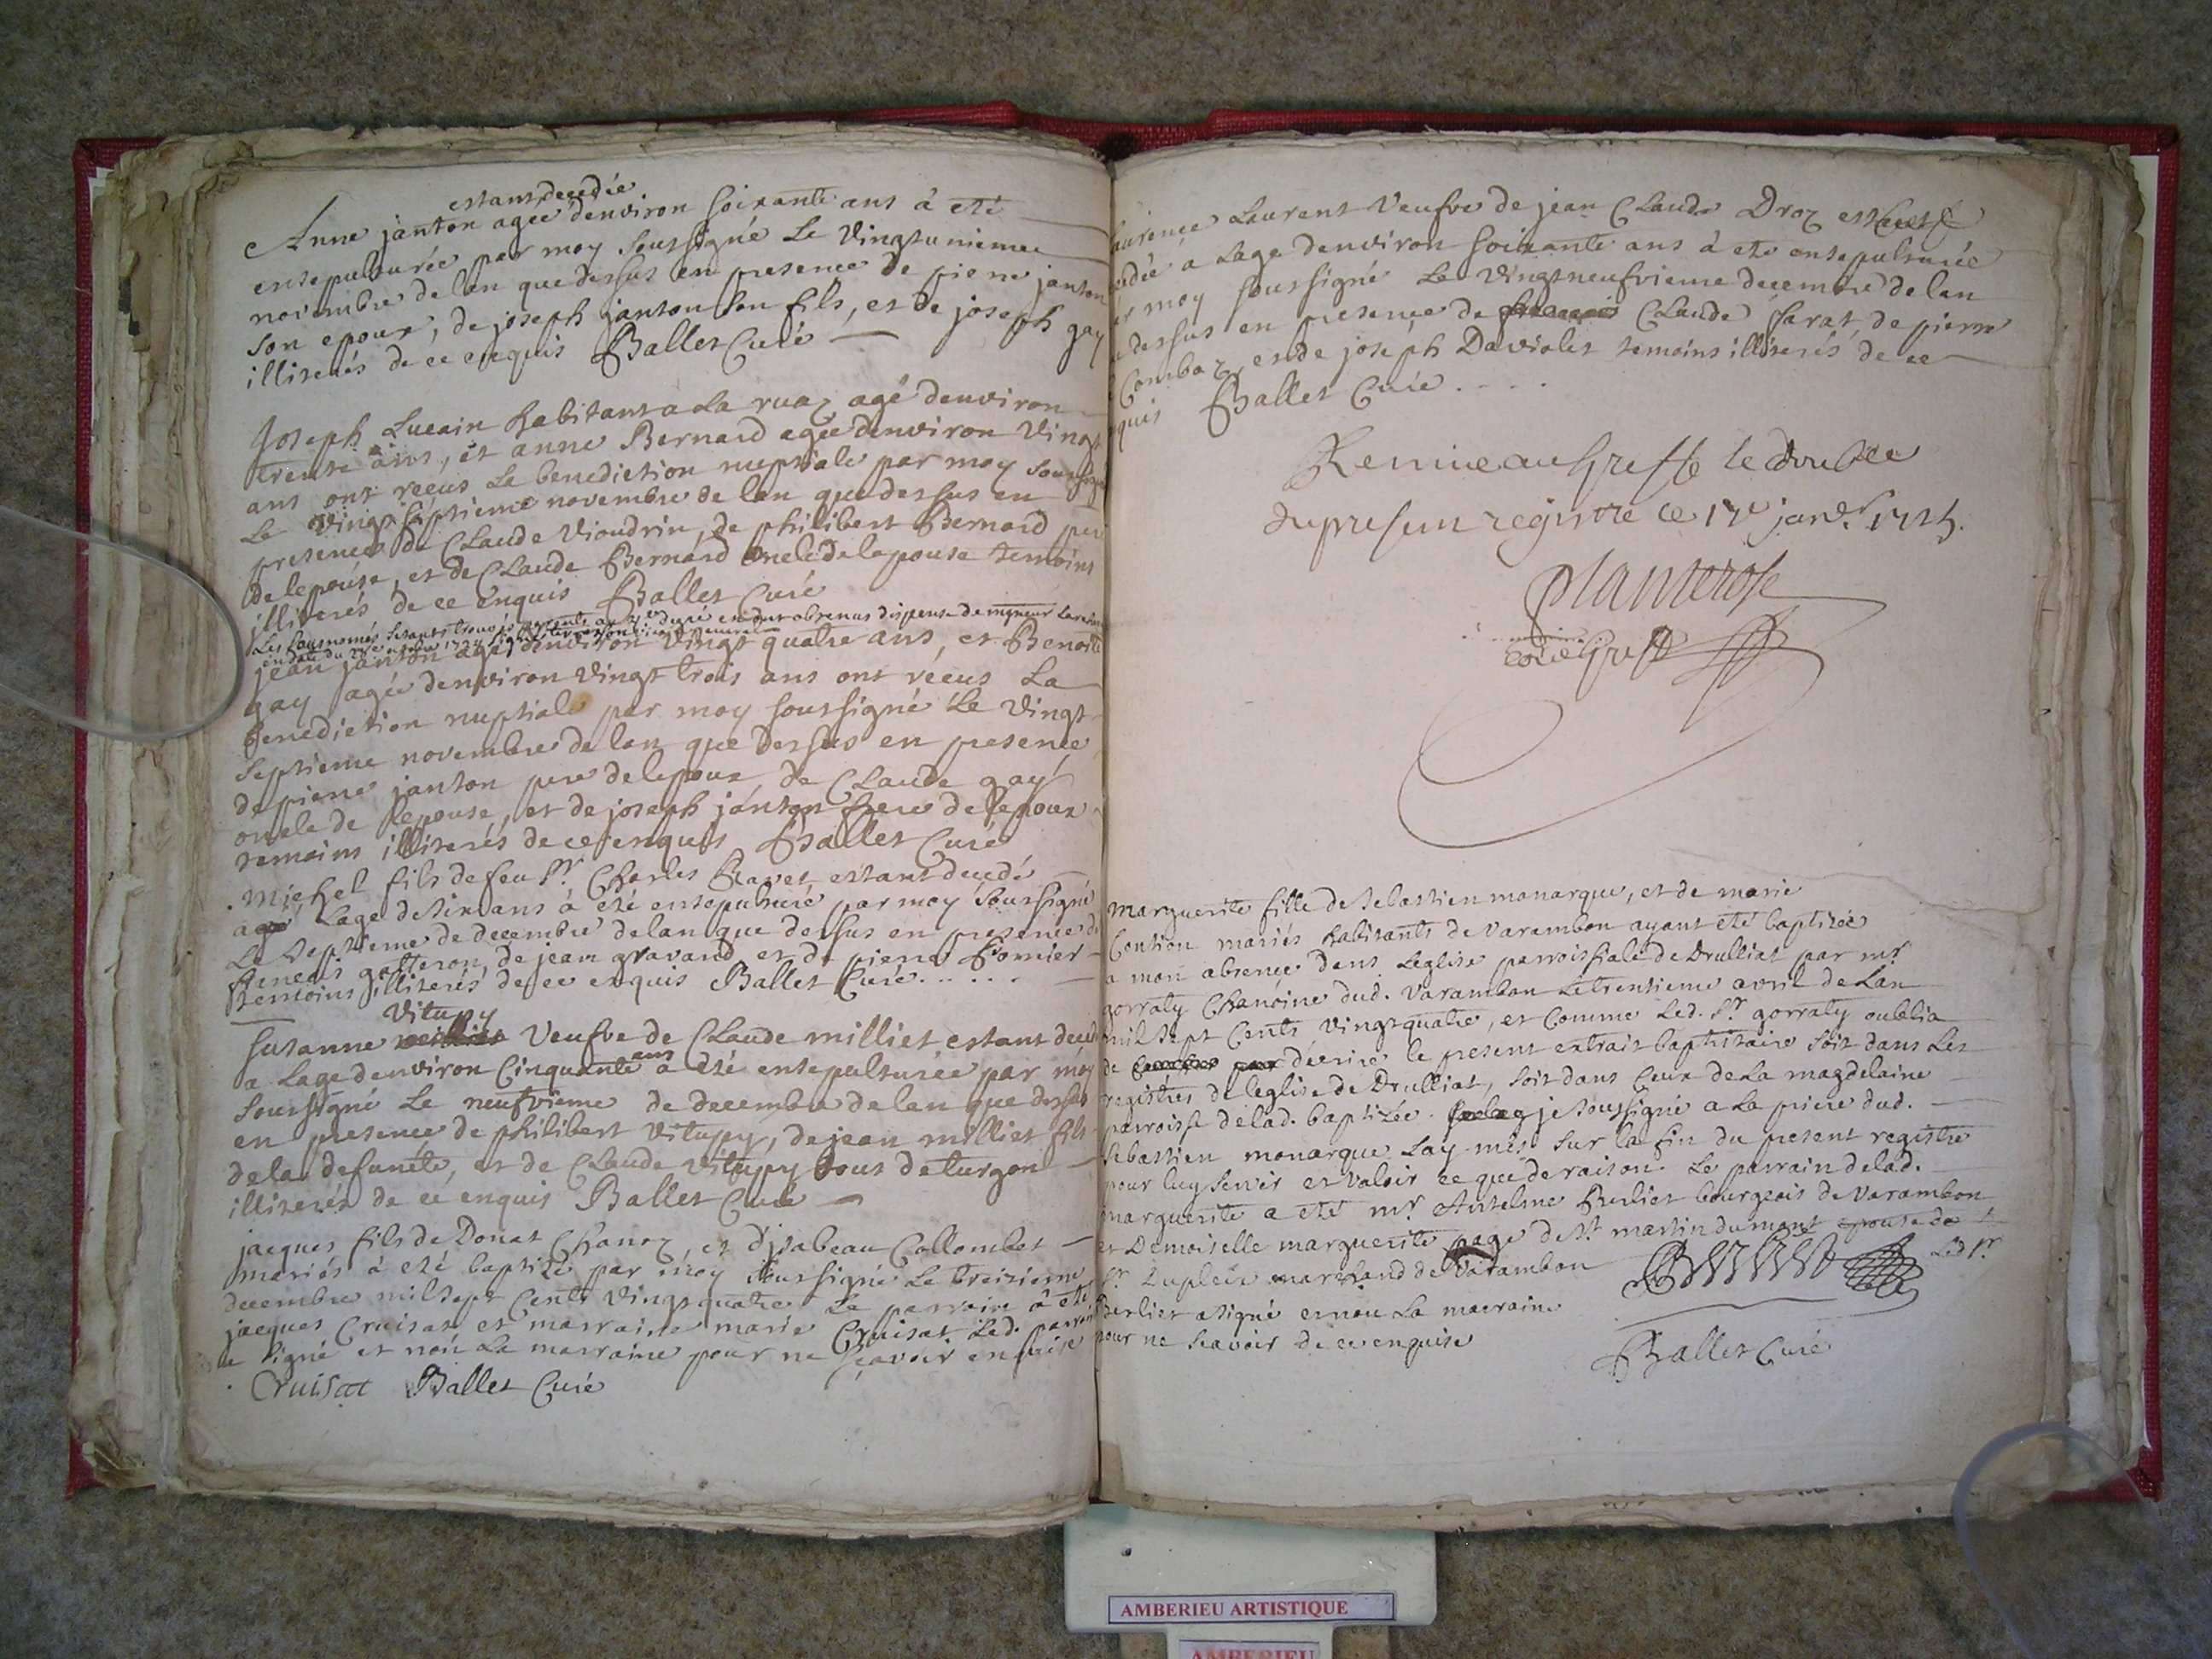 estant decedée
Anne janton agée denviron soixante ans à eté
ensepulturée par moy soussigné Le Vingtunieme
novembre de lan que dessus en presence de pierre janton
son epoux, de joseph janton son fils, et de joseph gay
illiterés de ce enquis Ballet Curé
Joseph Lucain habitant a La ruaz agé denviron
trente ans, et anne Bernard agée denviron Vingt
ans ont receus La benediction nuptiale par moy soussigné
Le Vingt septieme novembre de lan que dessus en
presence de Claude Vioudrin, de philibert Bernard pere
de lepouse, et de Claude Bernard oncle de lepouse temoins
illiterés de ce enquis Ballet Curé
Les susnomés sestants trouvés parents au degré ont obtenus dispense de
en date du 1724
jean janton agé denviron Vingt quatre ans, et Benoite
gay agée denviron Vingt trois ans ont receus La
Benediction nuptiale par moy soussigné Le Vingt
septieme novembre de lan que Dessus en presence
de pierre janton pere de lepoux, de Claude gay
oncle de Lepouse, et de joseph janton frere de Lepoux
temoins illiterés de ce enquis Ballet Curé
Michel fils de feu Sr Charles Ravet estant decedé
a Lage de six ans à eté ensepulturé par moy soussigné
Le septieme de decembre de lan que dessus en presence de
gatteron, de jean gravand, et de pierre Fornier
temoins illiterés de ce enquis Ballet Curé . . . . . .
Vitupy
Susanne Veufve de Claude milliet estant decedée
a Lage denviron Cinquante ans a eté ensepulturée par moy
soussigné Le neufvieme de decembre de lan que dessus
en presence de philibert Vitupy, de jean milliet fils
de la defunéte, et de Claude Vitupy tous de turgon
illiterés de ce enquis Ballet Curé
jacques fils de Donat Chanoz, et d'jsabeau Collombet
mariés à eté baptizé par moy soussigné Le treizieme
decembre mil sept Cents Vingt quatre Le parrain à eté
jacques Cruisat et marraine marie Cruisat Led. parrain
a signé et non La marraine pour ne sçavoir enquise
Cruisat Ballet Curé
Laurence Laurent Veufve de jean Claude Droz est
cedée a Lage denviron soixante ans à eté ensepulturée
par moy soussigné Le Vingt neufvieme decembre de lan
que dessus en presence de Claude farat, de pierre
Combaz, et de joseph Daviolet temoins illiterés de ce
enquis Ballet Curé . . . .
Remis au Greffe le double
du present registre ce 17e janvr 1725.
Planterose
Marguerite fille de Sebastien monarque, et de marie
Contion mariés habitants de Varambon ayant eté baptizée
a mon absence dans Leglise parroissiale de Drulliat par mr
gorraty Chanoine dud. Varambon Le trentieme avril de Lan
mil sept Cents Vingt quatre, et Comme Led. Sr gorraty oublia
de decrire le present extrait baptistaire soit dans Les
registres de leglise de Drulliat, soit dans Ceux de La magdelaine
parroisse de lad. baptizée. je soussigné a La priere dud.
Sebastien monarque Lay mis sur la fin du present registre
pour luy servir et Valoir ce que de raison. Le parrain de lad.
marguerite a eté mr Antelme Berliet bourgeois de Varambon
et Demoiselle marguerite page de St martin du mont epouse de
Sr Dupleix marchand de Varambon Led Sr
Berliet a signé et non La marraine
pour ne scavoir de ce enquise
Ballet Curé
AMBERIEU ARTISTIQUE
AMBERIEU